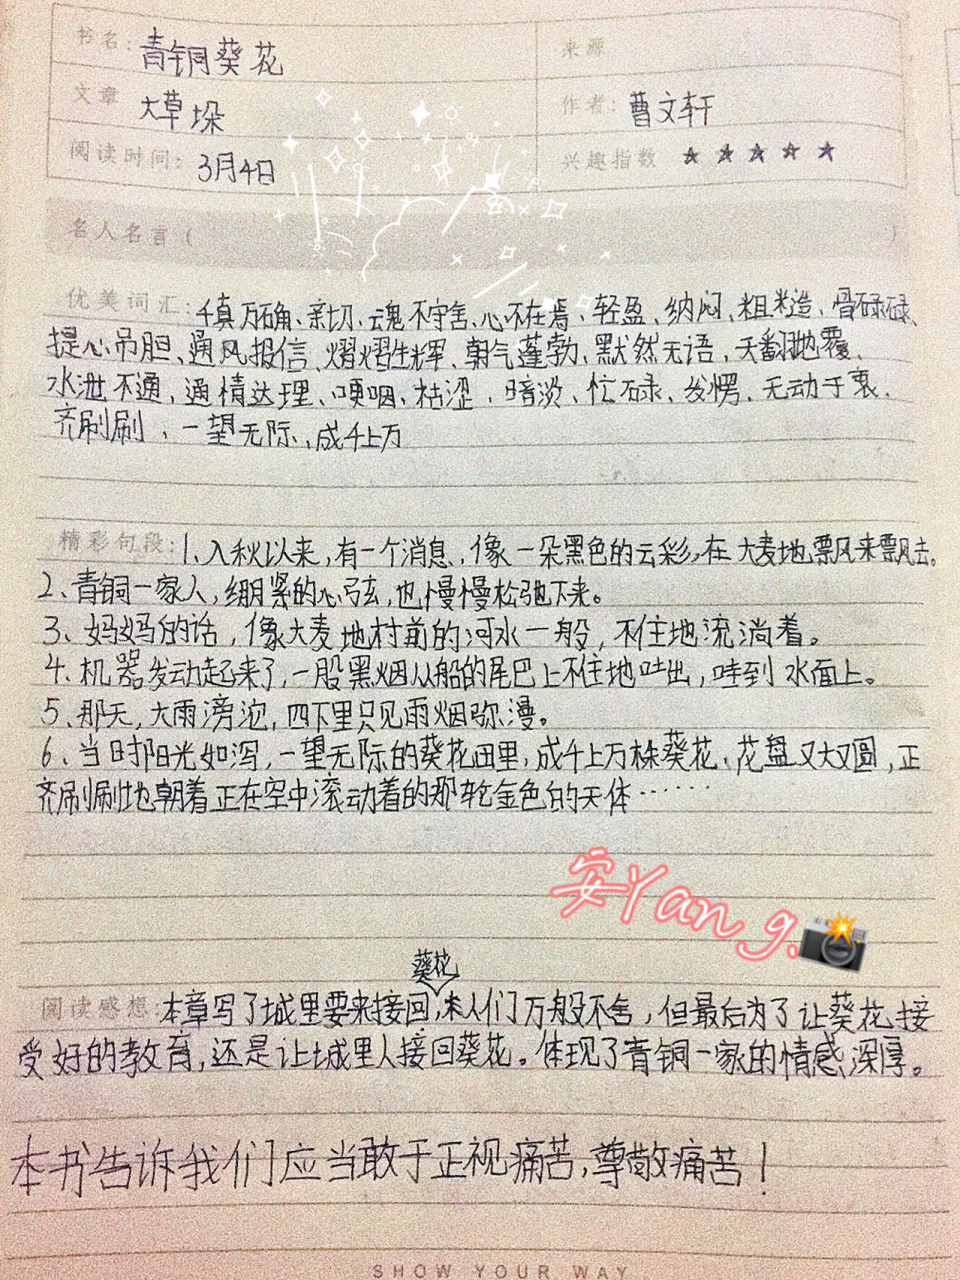 书名: 青铜葵花 来源
文章 大草垛 作者: 曹文轩
阅读时间: 3月4日 兴趣指数 ★★★★★
名人名言 ( )
优美词汇: 千真万确、亲切、云魂不守舍、心不在焉、轻盈、纳闷、粗糙、骨碌碌、
提心吊胆、通风报信、熠熠生辉、朝气蓬勃、默然无语、天翻地覆、
水泄不通、通情达理、哽咽、枯涩、暗淡、忙碌、发愣、无动于衷、
齐刷刷、一望无际、成千上万
精彩句段: 1、入秋以来,有一个消息,像一朵黑色的云彩,在大麦地飘风来飘去。
2、青铜一家人,绷紧的心弦,也慢慢松弛下来。
3、妈妈的话,像大麦地村前的河水一般,不住地流淌着。
4、机器发动起来了,一股黑烟从船的尾巴上不住地吐出,哇到水面上。
5、那天,大雨滂沱,四下里只见雨烟弥漫。
6、当时阳光如泻,一望无际的葵花田里,成千上万株葵花、花盘又大又圆,正
齐刷刷地朝着正在空中滚动着的那轮金色的天体……
安Yang.
葵花
阅读感想: 本章写了城里要来接回,末人们万般不舍,但最后为了让葵花接
受好的教育,还是让城里人接回葵花。体现了青铜一家的情感深厚。
本书告诉我们应当敢于正视痛苦,尊敬痛苦!
SHOW YOUR WAY